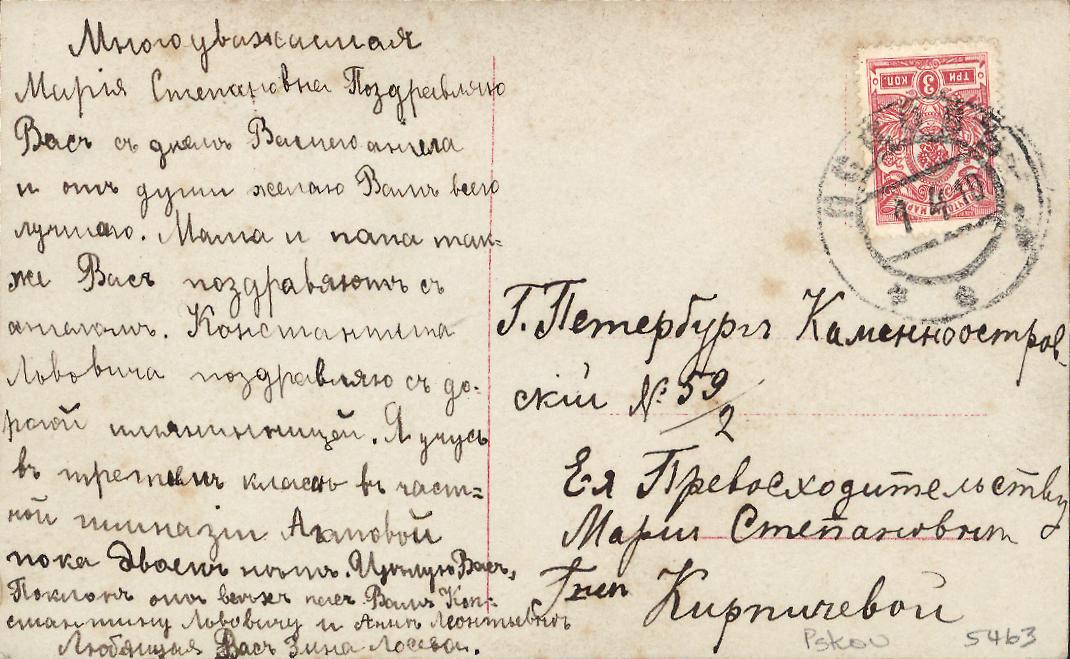 Многоуважаемая
Марія Степановна Поздравляю
Васъ съ днемъ Вашего ангела
и отъ души желаю Вамъ всего
лучшаго. Мама и папа так-
же Васъ поздравляютъ съ
ангеломъ. Константина
Львовича поздравляю съ до-
рогой имянинницей. Я учусь
въ третьемъ классѣ въ част=
ной гимназіи Агаповой
пока двоекъ нѣтъ. Цѣлую Васъ,
Поклонъ отъ всѣхъ насъ Вамъ Кон=
стантину Львовичу и Аннѣ Леонтьевнѣ
Любящая Васъ Зина Лосева.
ТРИ 3 КОП.
ПСКОВЪ
1 4 10
Г. Петербургъ Каменноостров-
скій № 59/2
Ея Превосходительству
Маріи Степановнѣ
Гжѣ Кирпичевой
Pskov 5463